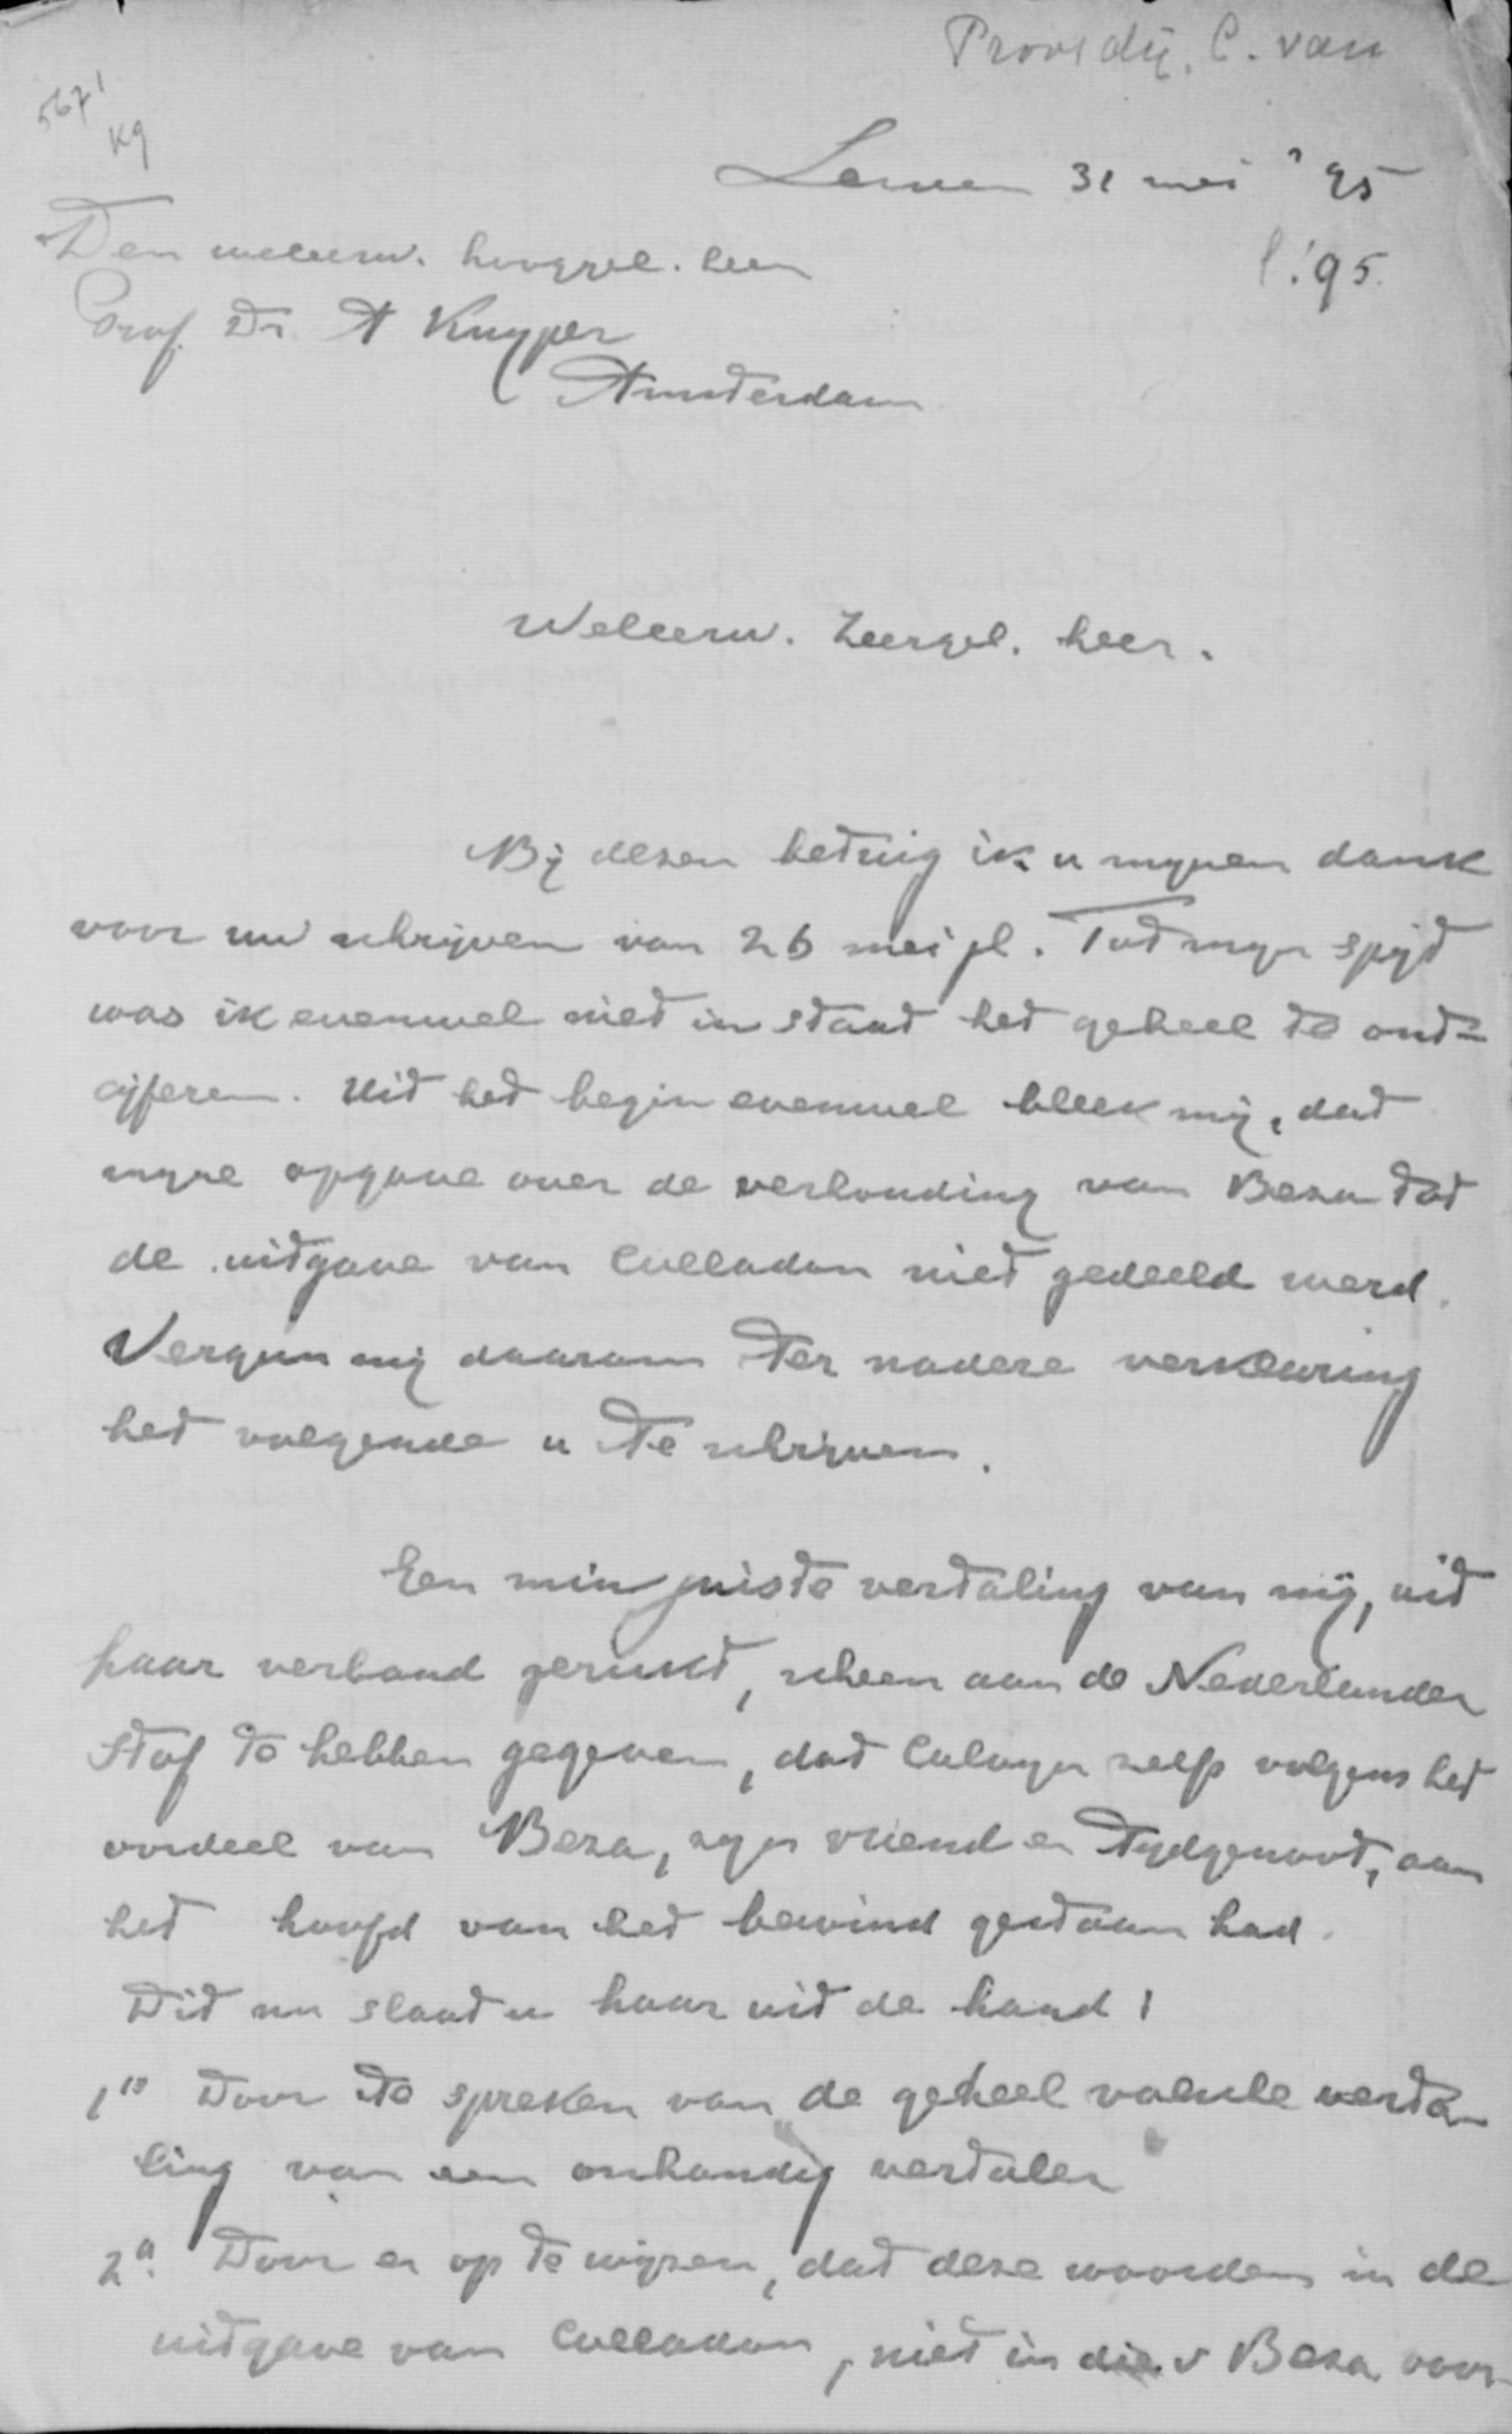 Proosdij, C. van
5671
Kg
Leiden 31 mei '95
l. '95.
Den weleerw. hooggel. heer
Prof. Dr. A Kuyper
Amsterdam
Weleerw. Zeergel. heer.
Bij dezen betuig ik u mynen dank
voor uw schrijven van 26 mei jl. Tot myn spijt
was ik evenwel niet in staat het geheel te ont=
cijferen. Uit het begin evenwel bleek mij, dat
myne opgave over de verhouding van Beza tot
de uitgave van Colladon niet gedeeld werd.
Vergun mij daarom ter nadere verklaring
het volgende u te schrijven.
Een min juiste vertaling van mij, uit
haar verband gerukt, scheen aan de Nederlander
stof te hebben gegeven, dat Calvyn zelfs volgens het
oordeel van Beza, zyn vriend en tydgenoot, aan
het hoofd van het bewind gestaan had.
Dit nu slaat u haar uit de hand:
1° Door te spreken van de geheel valsche verta-
ling van een onhandig vertaler
2°. Door er op te wijzen, dat deze woorden in de
uitgave van Colladon, niet in die v Beza voor-